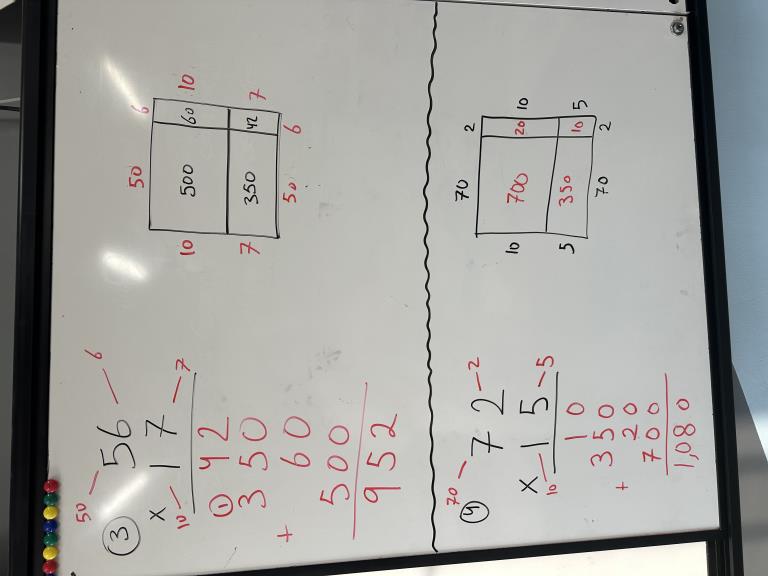 ③ 50 — 56 — 6
x 10 — 17 — 7
① 42
350
+ 60
500
952
50 6
10 500 60 10
7 350 42 7
50 6
④ 70 — 72 — 2
x 10 — 15 — 5
10
350
+ 20
700
1,080
70 2
10 700 20 10
5 350 10 5
70 2